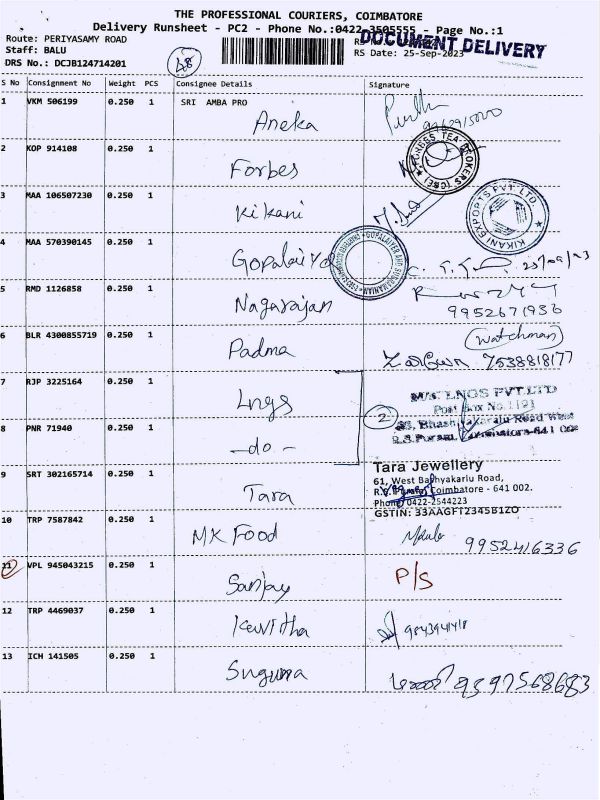 THE PROFESSIONAL COURIERS, COIMBATORE
Delivery Runsheet - PC2 - Phone No.:0422-3505555 - Page No.:1
Route: PERIYASAMY ROAD
DOCUMENT DELIVERY
Staff: BALU
48
RS Date: 25-Sep-2023
DRS No.: DCJB124714201
S No Consignment No Weight PCS Consignee Details Signature
1 VKM 506199 0.250 1 SRI AMBA PRO
Aneka
2 KOP 914108 0.250 1
Forbes
FORBES TEA BROKERS (CBE)
3 MAA 106507230 0.250 1
Kikani
KIKANI EXPORTS PVT. LTD.
4 MAA 570390145 0.250 1
GOPALAIYER AND SUBRAMANIAN
5 RMD 1126858 0.250 1
Nagarajan
9952671936
6 BLR 4300855719 0.250 1 (watchman)
Padma 7538818177
7 RJP 3225164 0.250 1
Lngs
2
8 PNR 71940 0.250 1
-do-
9 SRT 302165714 0.250 1
Tara
Tara Jewellery
61, West Bashyakarlu Road,
R.S. Puram, Coimbatore - 641 002.
Phone: 0422-2544223
GSTIN: 33AAGFT2345B1ZO
10 TRP 7587842 0.250 1
MK Food 9952416336
11 VPL 945043215 0.250 1 P/S
Sanjay
12 TRP 4469037 0.250 1
Kavitha
13 ICH 141505 0.250 1
Suguna 9597568683